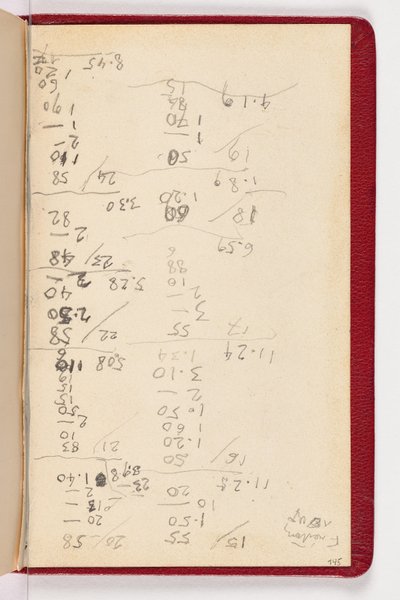 15/ 55
1.50
10 —
20
11.25
16/ 50
1.20
1.60
10.50
2 —
3.10
1.34
11.24
17/ 55
3 —
2 —
10
88
6
6.59
18/ 60
1.20
1.89
19/ 50
1 —
70
84
15
4.19
20/ 58
20 —
2 —
1.40
23 —
21/ 83
10
2 —
50
15
15
19
110
508
22/ 58
2.50
40
2
5.28
23/ 48
2 —
82
3.30
24/ 58
10
2 —
1 —
1.90
60
1
8.45
145